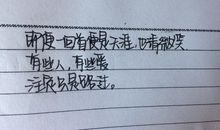 即便一回首便是天涯，也请微笑
有些人，有些爱
注定只是路过。